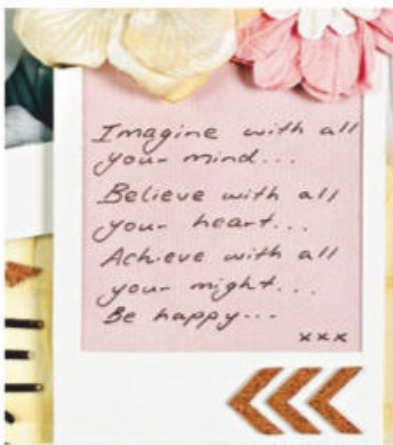 Imagine with all
your mind...
Believe with all
your heart...
Achieve with all
your might...
Be happy...
xxx